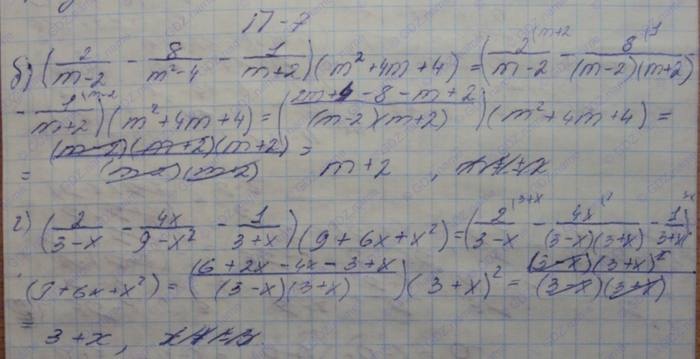 П-7
б) (2/(m-2) - 8/(m²-4) - 1/(m+2))(m²+4m+4) = (2^{\m+2}/(m-2) - 8^{\1}/((m-2)(m+2))
- 1^{\m-2}/(m+2))(m²+4m+4) = ((2m+4-8-m+2)/((m-2)(m+2)))(m²+4m+4) =
= ((m-2)(m+2)(m+2))/((m-2)(m+2)) = m+2,
г) (2/(3-x) - 4x/(9-x²) - 1/(3+x))(9+6x+x²) = (2^{\3+x}/(3-x) - 4x/((3-x)(3+x)) - 1/(3+x))
(9+6x+x²) = ((6+2x-4x-3+x)/((3-x)(3+x)))(3+x)² = ((3-x)(3+x)²)/((3-x)(3+x))
=
3+x,